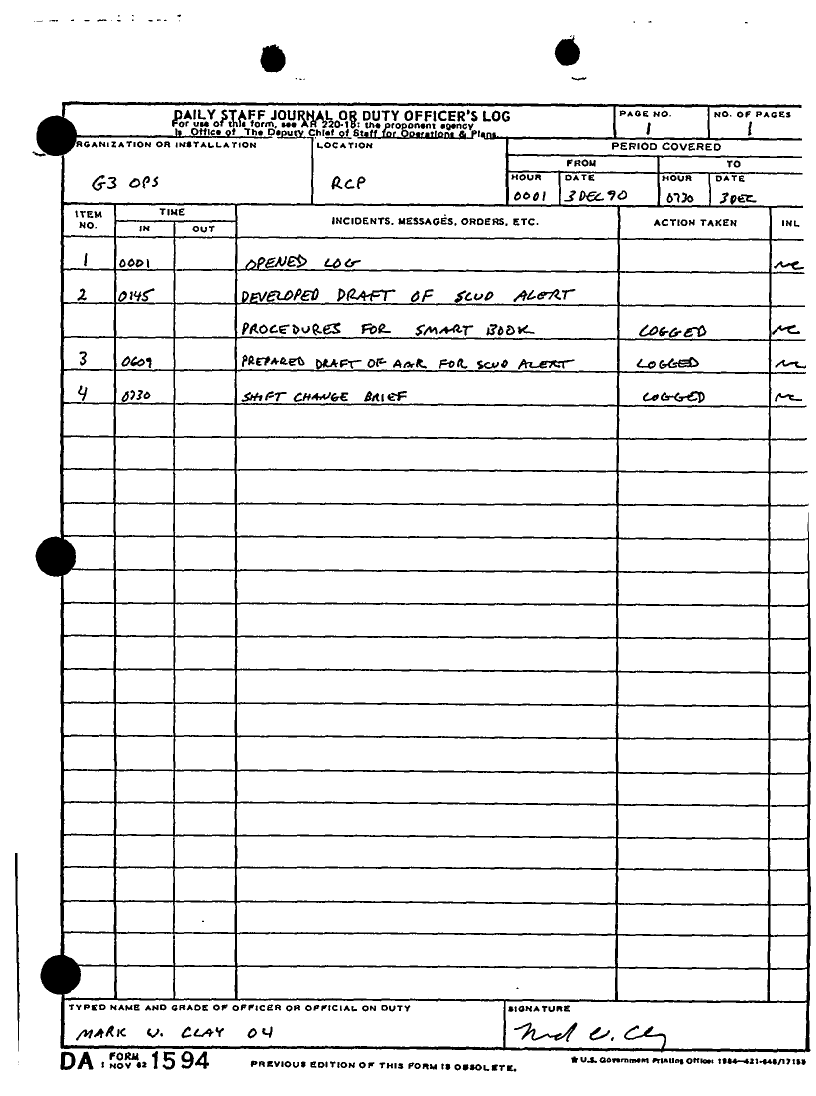 DAILY STAFF JOURNAL OR DUTY OFFICER'S LOG
For use of this form, see AR 220-15; the proponent agency
is Office of The Deputy Chief of Staff for Operations & Plans.
PAGE NO.
1
NO. OF PAGES
1
RGANIZATION OR INSTALLATION
G3 OPS
LOCATION
RCP
PERIOD COVERED
FROM TO
HOUR DATE HOUR DATE
0001 3 DEC 90 0730 3 DEC
ITEM NO. TIME IN OUT INCIDENTS, MESSAGES, ORDERS, ETC. ACTION TAKEN INL
1 0001 OPENED LOG
2 0145 DEVELOPED DRAFT OF SCUD ALERT
PROCEDURES FOR SMART BOOK LOGGED
3 0609 PREPARED DRAFT OF AAR FOR SCUD ALERT LOGGED
4 0730 SHIFT CHANGE BRIEF LOGGED
TYPED NAME AND GRADE OF OFFICER OR OFFICIAL ON DUTY
MARK W. CLAY 04
SIGNATURE
DA FORM 1 NOV 62 1594
PREVIOUS EDITION OF THIS FORM IS OBSOLETE.
☆ U.S. Government Printing Office: 1984-421-646/17155